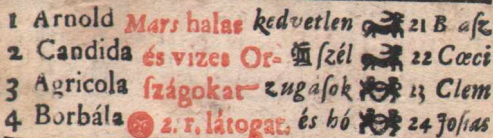 1 Arnold Mars halat kedvetlen 21 B asz
2 Candida és vizes Or- szél 22 Cæci
3 Agricola szágokat zugások 23 Clem
4 Borbála 2. r. látogat. és hó 24 Josias